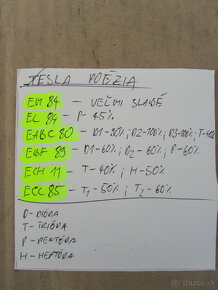 TESLA POÉZIA
EM 84 - VEĽMI SLABÉ
EL 84 - P - 45%
EABC 80 - D1-80%, D2-100%, D3-100%, T-
EBF 89 - D1-60%, D2-60%, P-60%
ECH 11 - T-40%, H-50%
ECC 85 - T1-50%, T2-60%
D-DIÓDA
T-TRIÓDA
P-PENTÓDA
H-HEPTÓDA
bazos.sk